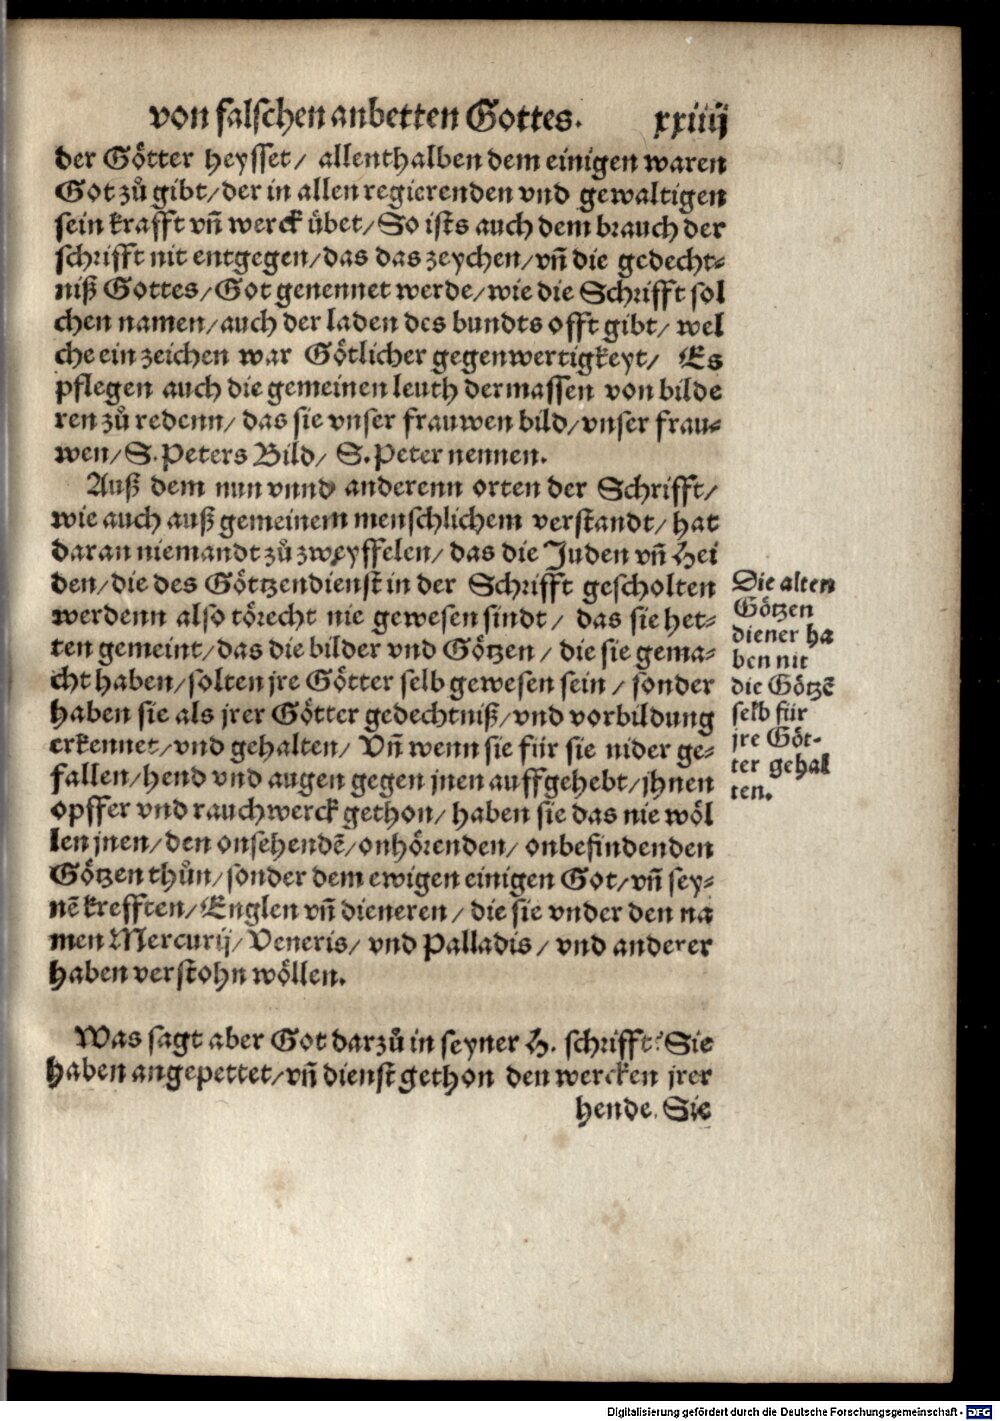 von falschen anbetten Gottes. xxiiij
der Götter heysset/ allenthalben dem einigen waren
Got zů gibt/der in allen regierenden vnd gewaltigen
sein krafft vñ werck übet/So ists auch dem brauch der
schrifft nit entgegen/das das zeychen/vñ die gedecht-
niß Gottes/Got genennet werde/wie die Schrifft sol
chen namen/auch der laden des bundts offt gibt/ wel
che ein zeichen war Götlicher gegenwertigkeyt/ Es
pflegen auch die gemeinen leuth dermassen von bilde
ren zů redenn/ das sie vnser frauwen bild/vnser frau-
wen/S.Peters Bild/ S.Peter nennen.
Auß dem nun vnnd anderenn orten der Schrifft/
wie auch auß gemeinem menschlichem verstandt/ hat
daran niemandt zů zweyffelen/ das die Juden vñ Hei
den/die des Götzendienst in der Schrifft gescholten
werdenn also törecht nie gewesen sindt/ das sie het-
ten gemeint/das die bilder vnd Götzen/ die sie gema-
cht haben/solten jre Götter selb gewesen sein/ sonder
haben sie als jrer Götter gedechtniß/vnd vorbildung
erkennet/vnd gehalten/ Vñ wenn sie für sie nider ge-
fallen/hend vnd augen gegen jnen auffgehebt/jhnen
opffer vnd rauchwerck gethon/ haben sie das nie wöl
len jnen/den onsehendē/onhörenden/ onbefindenden
Götzen thůn/sonder dem ewigen einigen Got/vñ sey-
nē krefften/Englen vñ dieneren/ die sie vnder den na
men Mercurij/Veneris/ vnd Palladis/ vnd anderer
haben verstohn wöllen.
Die alten
Götzen
diener ha
ben nit
die Götzē
selb für
jre Göt-
ter gehal
ten.
Was sagt aber Got darzů in seyner H. schrifft? Sie
haben angepettet/vñ dienst gethon den wercken jrer
hende. Sie
Digitalisierung gefördert durch die Deutsche Forschungsgemeinschaft - DFG